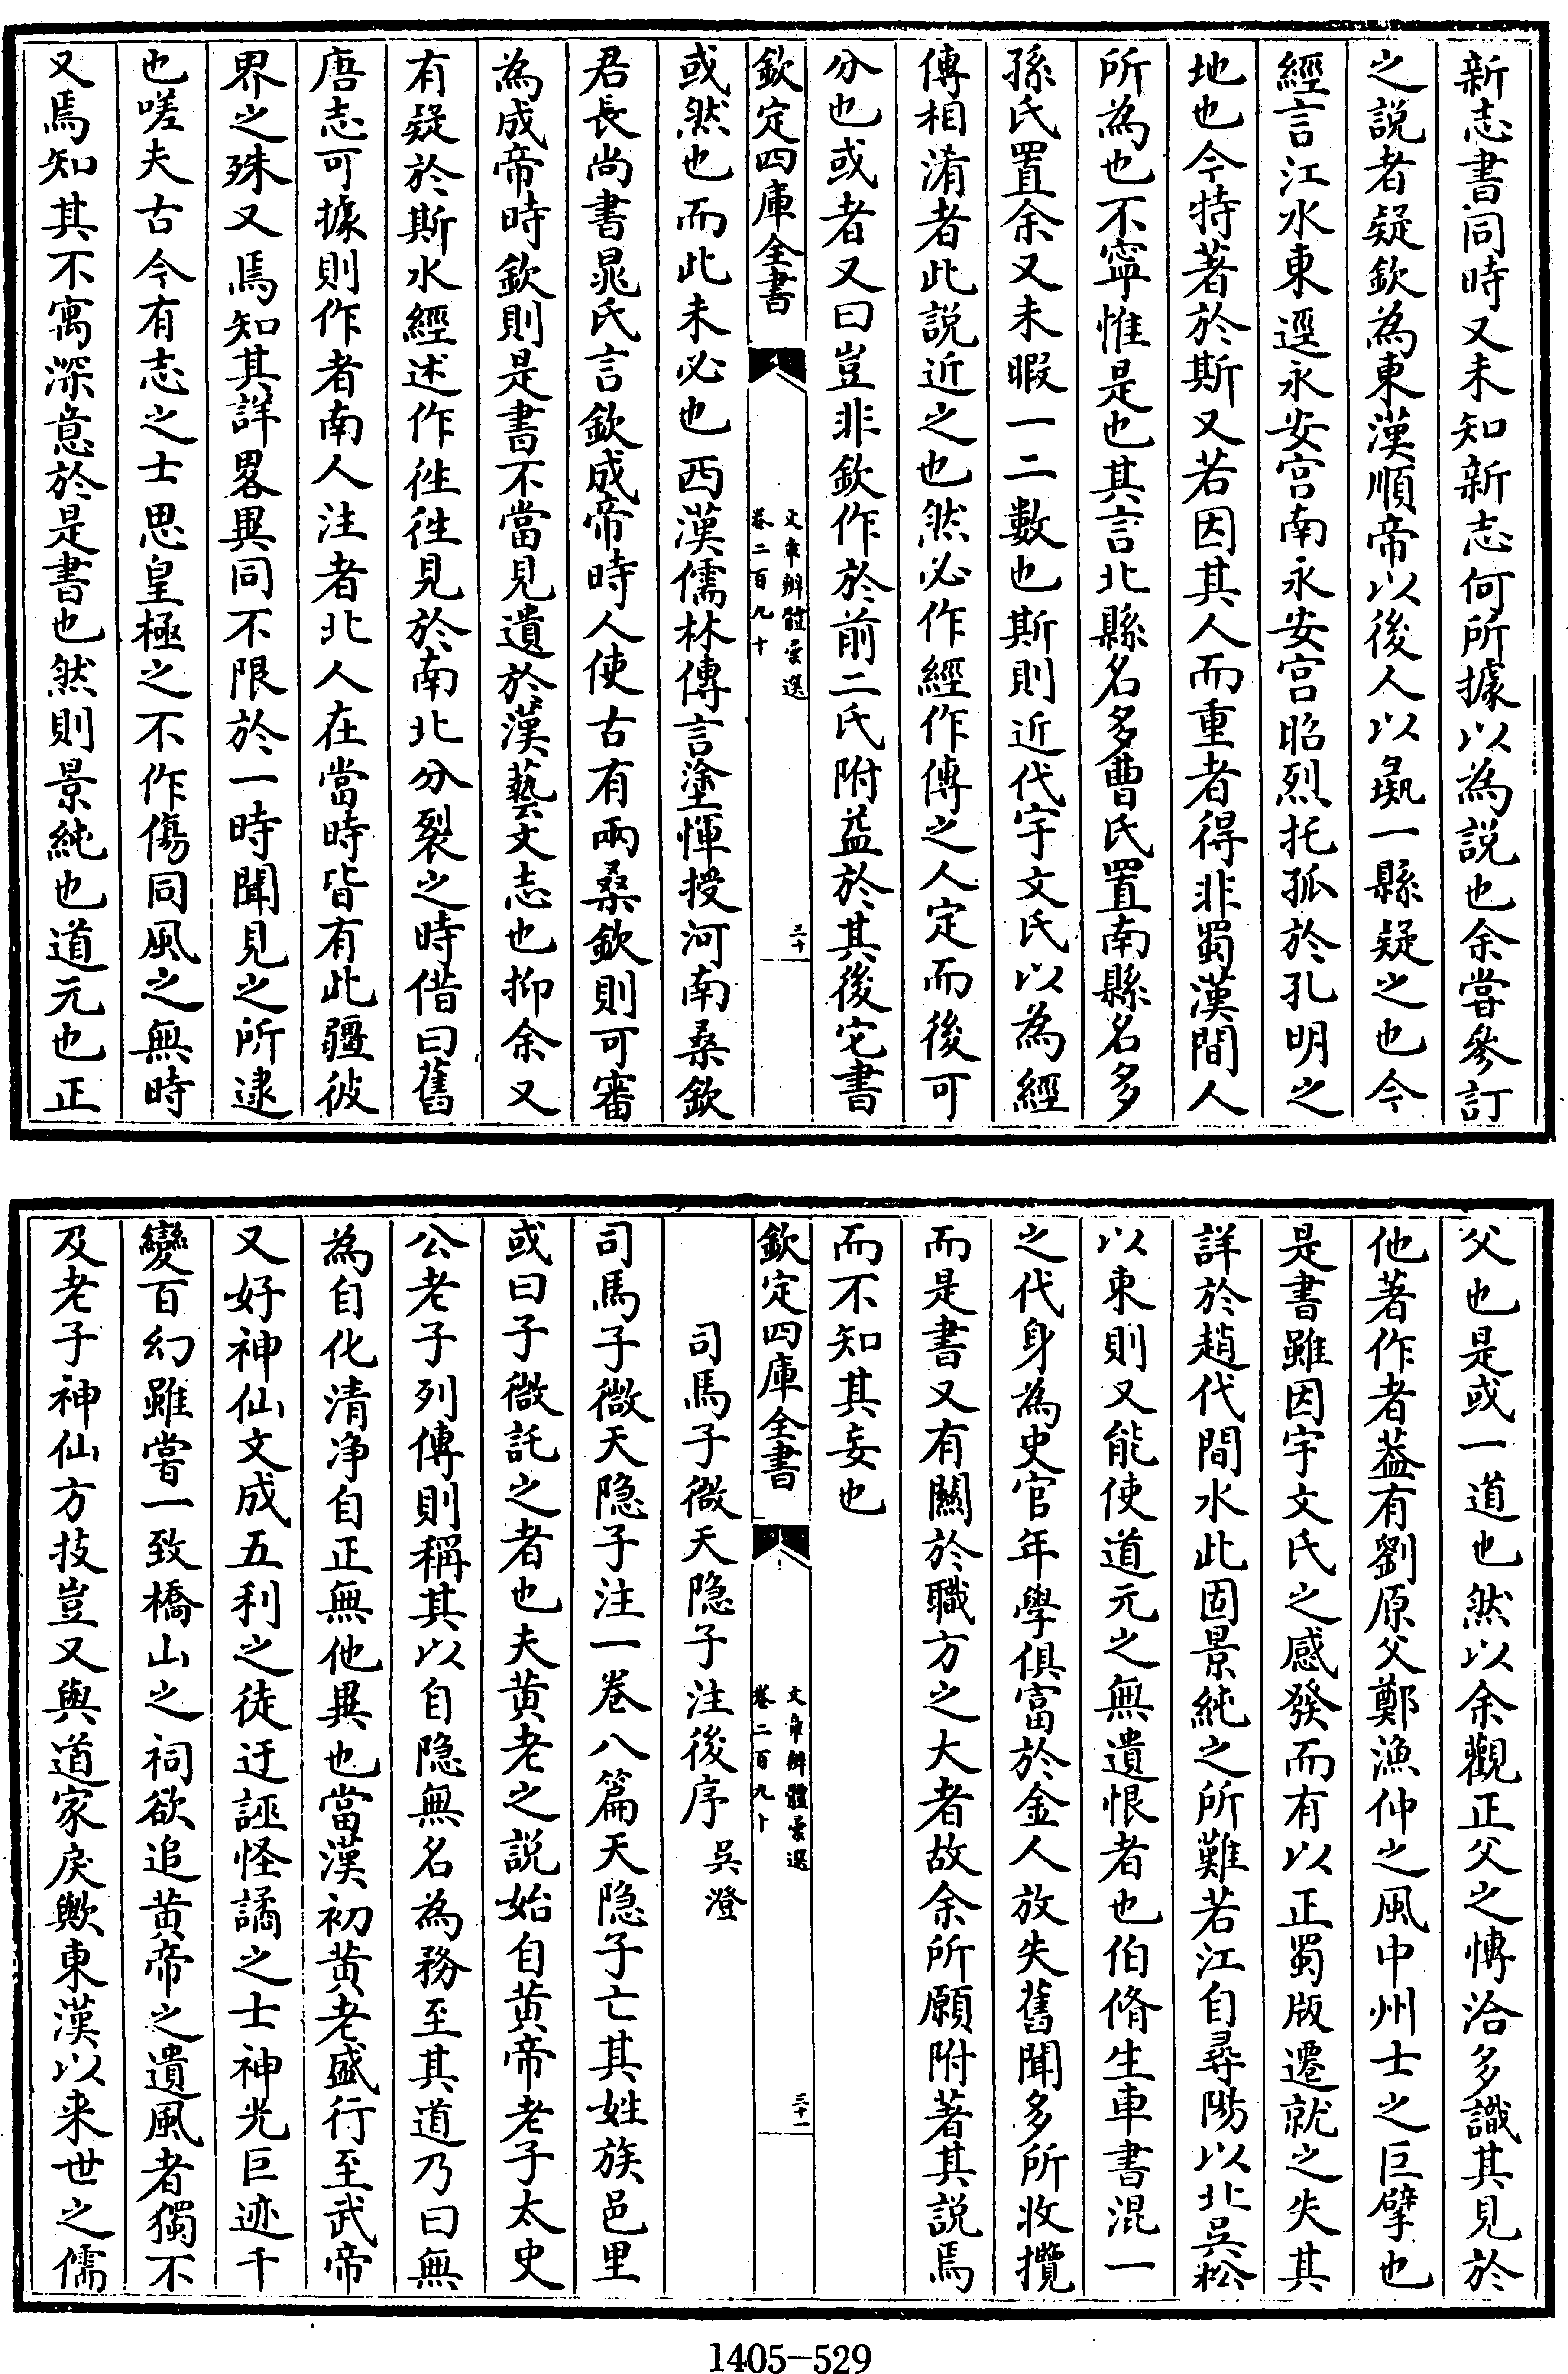 新志書同時又未知新志何所據以為説也余嘗參訂
之説者疑欽為東漢順帝以後人以彘一縣疑之也今
經言江水東逕永安宫南永安宫昭烈托孤於孔明之
地也今特著於斯又若因其人而重者得非蜀漢間人
所為也不寧惟是也其言北縣名多曹氏置南縣名多
孫氏置余又未暇一二數也斯則近代宇文氏以為經
傳相淆者此説近之也然必作經作傳之人定而後可
分也或者又曰豈非欽作於前二氏附益於其後它書
欽定四庫全書
文章辨體彙選
卷二百九十
三十
或然也而此未必也西漢儒林傳言塗惲授河南桑欽
君長尚書晁氏言欽成帝時人使古有兩桑欽則可審
為成帝時欽則是書不當見遺於漢藝文志也抑余又
有疑於斯水經述作徃徃見於南北分裂之時借曰舊
唐志可據則作者南人注者北人在當時皆有此疆彼
界之殊又焉知其詳畧異同不限於一時聞見之所逮
也嗟夫古今有志之士思皇極之不作傷同風之無時
又焉知其不寓深意於是書也然則景純也道元也正
父也是或一道也然以余觀正父之愽洽多識其見於
他著作者葢有劉原父鄭漁仲之風中州士之巨擘也
是書雖因宇文氏之感發而有以正蜀版遷就之失其
詳於趙代間水此固景純之所難若江自尋陽以北呉松
以東則又能使道元之無遺恨者也伯脩生車書混一
之代身為史官年學俱富於金人放失舊聞多所收攬
而是書又有關於職方之大者故余所願附著其説焉
而不知其妄也
欽定四庫全書
文章辨體彙選
卷二百九十
三十一
司馬子微天隐子注後序 吳澄
司馬子微天隐子注一卷八篇天隐子亡其姓族邑里
或曰子微託之者也夫黄老之説始自黄帝老子太史
公老子列傳則稱其以自隐無名為務至其道乃曰無
為自化清净自正無他異也當漢初黄老盛行至武帝
又好神仙文成五利之徒迂誣怪譎之士神光巨迹千
變百幻雖嘗一致橋山之祠欲追黄帝之遺風者獨不
及老子神仙方技豈又與道家戾歟東漢以来世之儒
1405-529